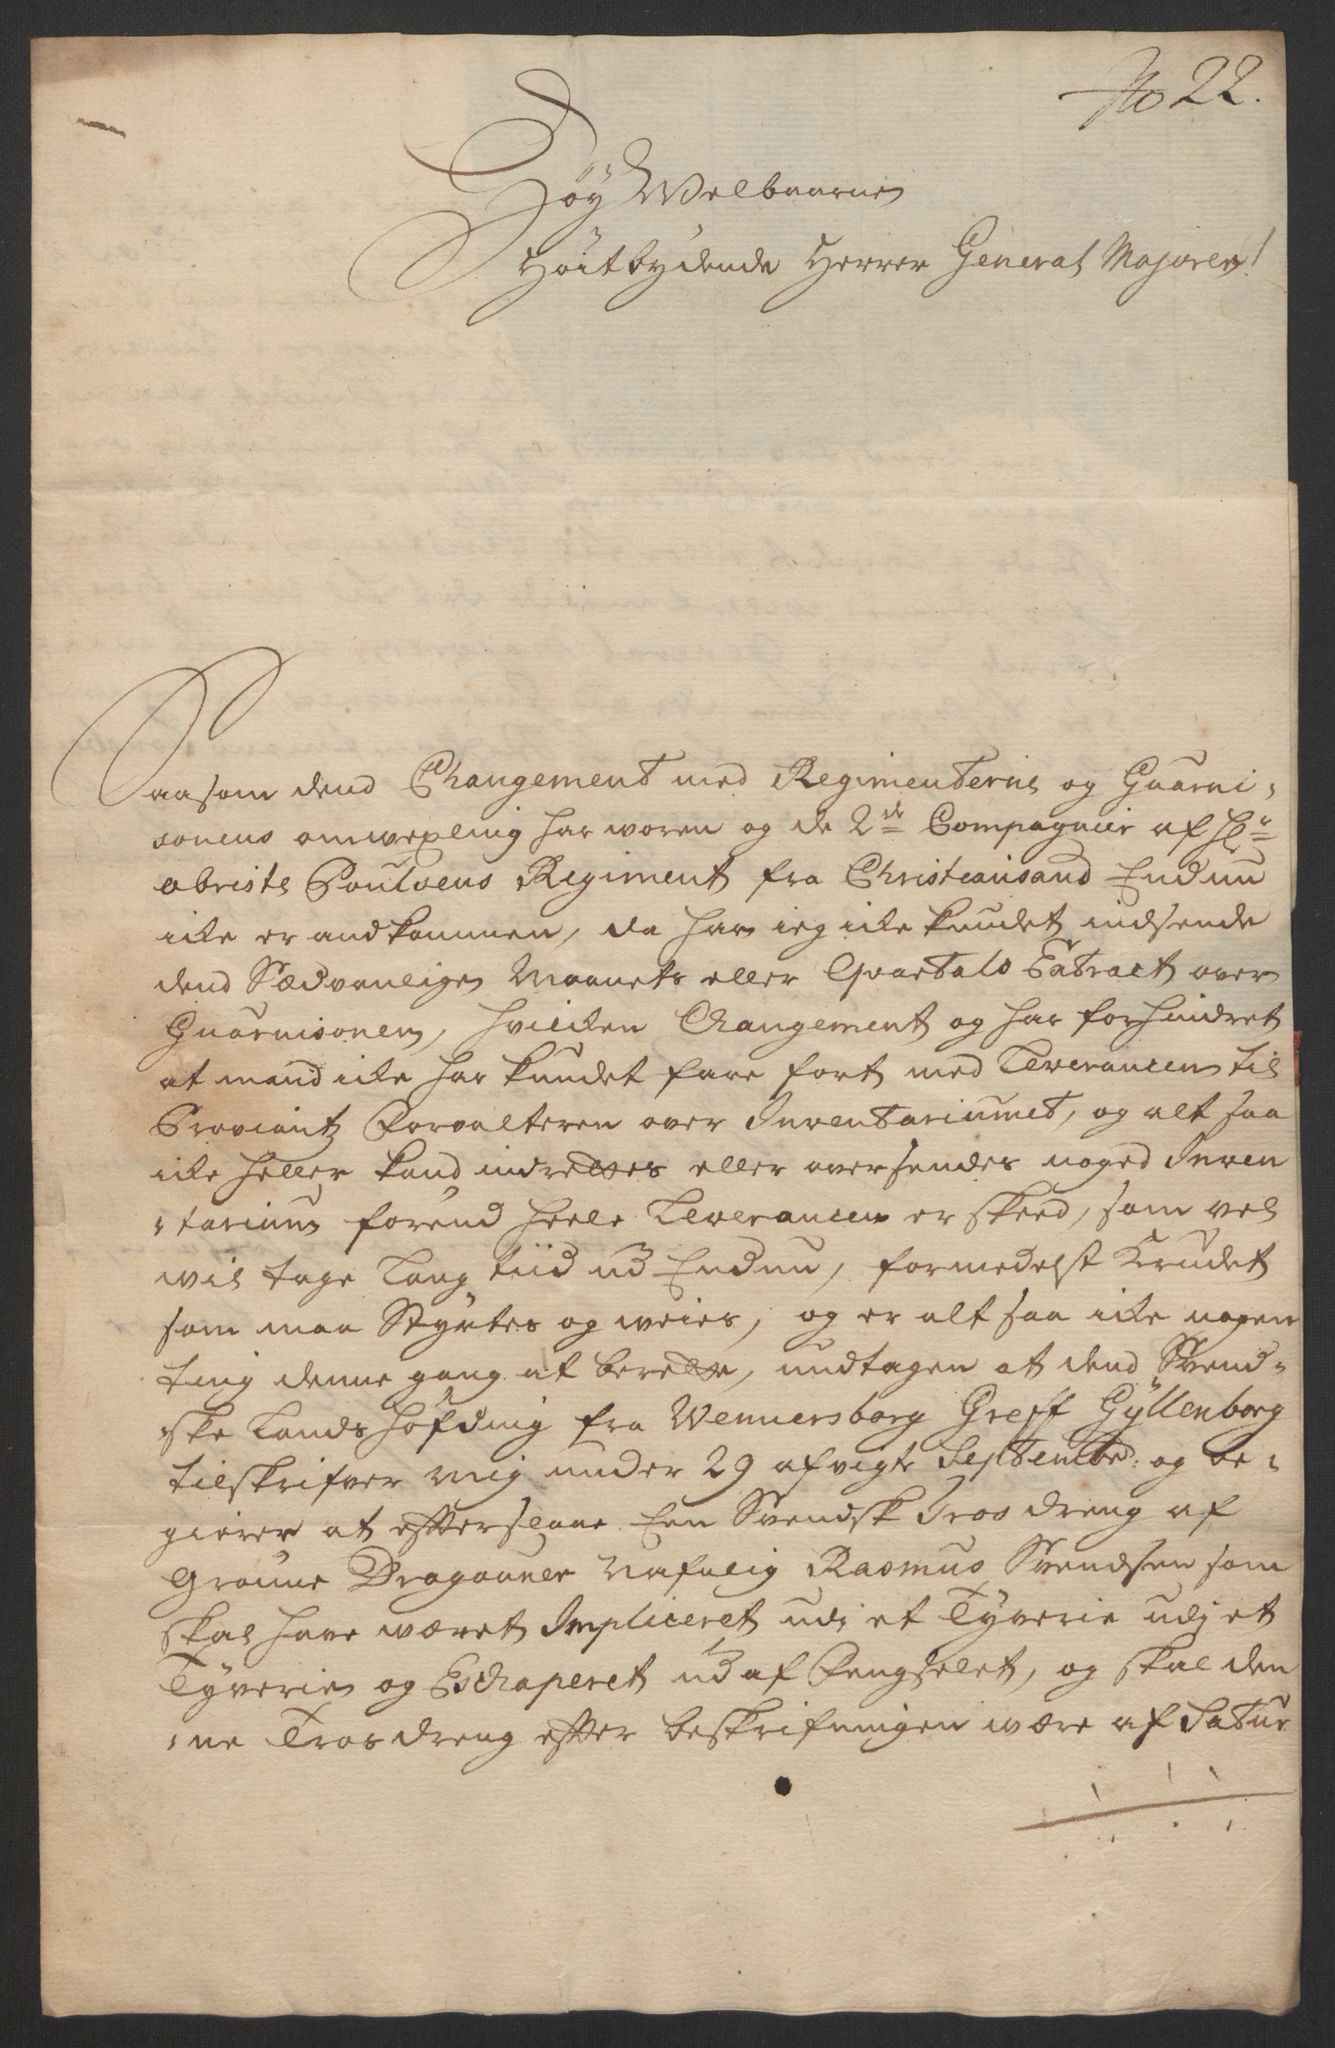 No 22.
Høy Welbaarne
Høitbydende Herrer General Majoren!
Saasom dend Changement med Regimenterne og Guarni-
sonens omvexling har woren og de 2de Compagnier af Hr
obriste Poulsens Regiment fra Christiansand Endnu
icke er andkommen, da har ieg icke kundet indsende
dend Sædvanlige Maanets eller Qvartals Extract over
Guarnisonen, hvilcken Changement og har forhindret
at mand icke har kundet fare fort med Leverancen til
Proviant Forvalteren over Inventariumet, og alt saa
icke heller kand indrettes eller oversendes noged Inven
-tarium førend heele Leverancen er skeed, som vel
wil tage Lang tiid ud Endnu, formedelst Krudet
som maa Styrtes og weies, og er alt saa icke nogen
ting denne gang at berette, undtagen at dend Svend-
ske Landshøfding fra Wennersborg Greff Gyllenborg
tilskrifver mig under 29 afvigte Septembr: og be-
gierer at efterslaae Een Svendsk Trosdreng af
Grønne Dragouner Nafnlig Rasmus Svendsen som
skal have wæret Impliceret udi et Tyverie udj et
Tyverie og Echaperet ud af Fengselet, og skal den
-ne Trosdreng efter beskrifningen wære af Statur